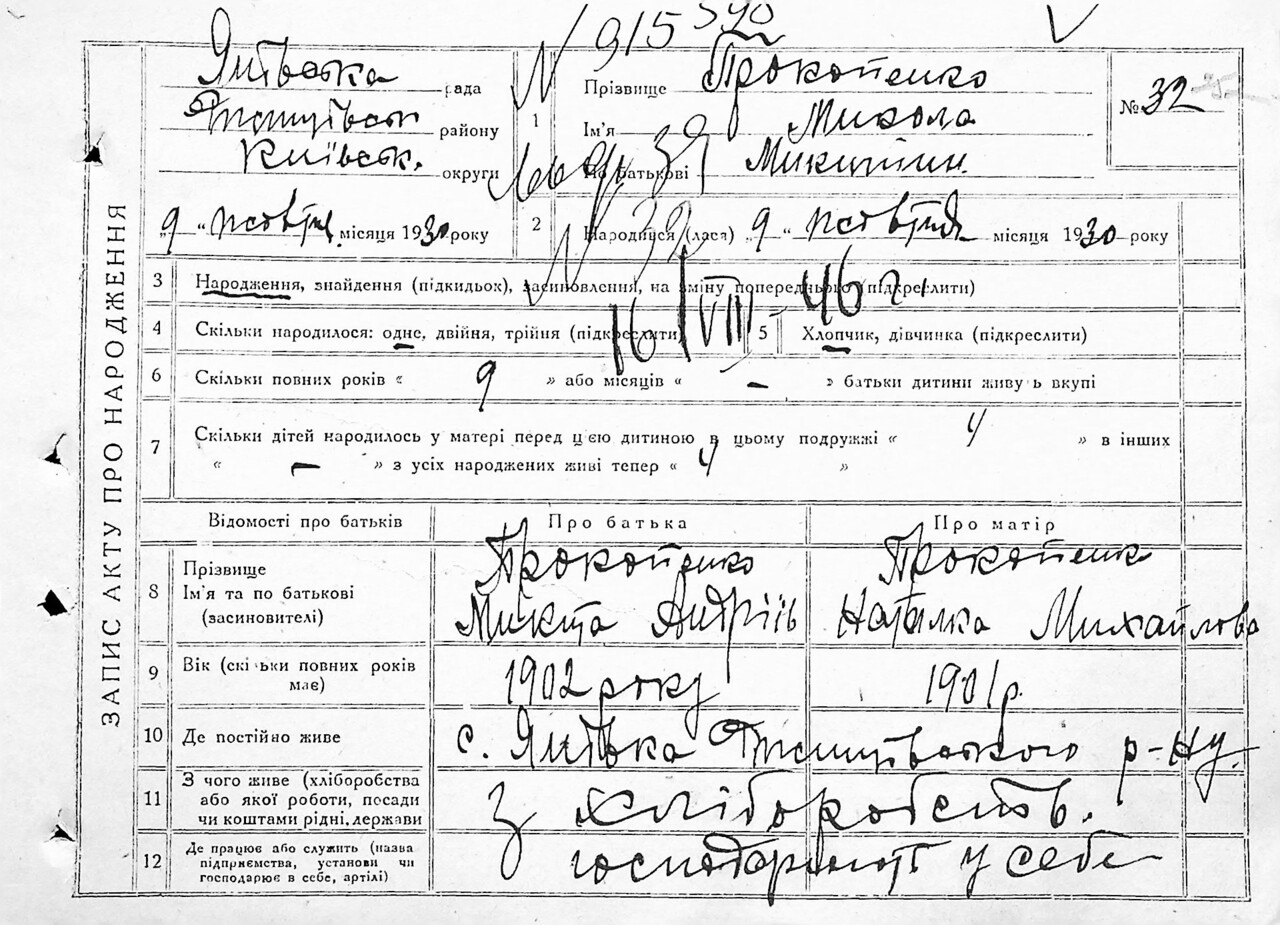 N 915390
Ямівська рада
району
Київськ. округи
„9 “ жовтня місяця 1930 року
ЗАПИС АКТУ ПРО НАРОДЖЕННЯ
1 Прізвище Прокопенко
Ім'я Микола
По батькові Микитин.
№ 32
2 Народився (лася) „9 “ жовтня місяця 1930 року
N 32
16/VIII 46 г.
3 Народження, знайдення (підкидьок), засиновлення, на зміну попереднього (підкреслити)
4 Скільки народилося: одне, двійня, трійня (підкреслити) 5 Хлопчик, дівчинка (підкреслити)
6 Скільки повних років « 9 » або місяців « – » батьки дитини живуть вкупі
7 Скільки дітей народилось у матері перед цією дитиною в цьому подружжі « 4 » в інших
« – » з усіх народжених живі тепер « 4 »
Відомості про батьків Про батька Про матір
8 Прізвище Ім'я та по батькові (засиновителі) Прокопенко Прокопенк
Микита Андріїв Наталка Михайлова
9 Вік (скільки повних років має) 1902 року 1901 р.
10 Де постійно живе с. р-ну.
11 З чого живе (хліборобства або якої роботи, посади чи коштами рідні, держави З хліборобств.
12 Де працює або служить (назва підприємства, установи чи господарює в себе, артілі) у себе